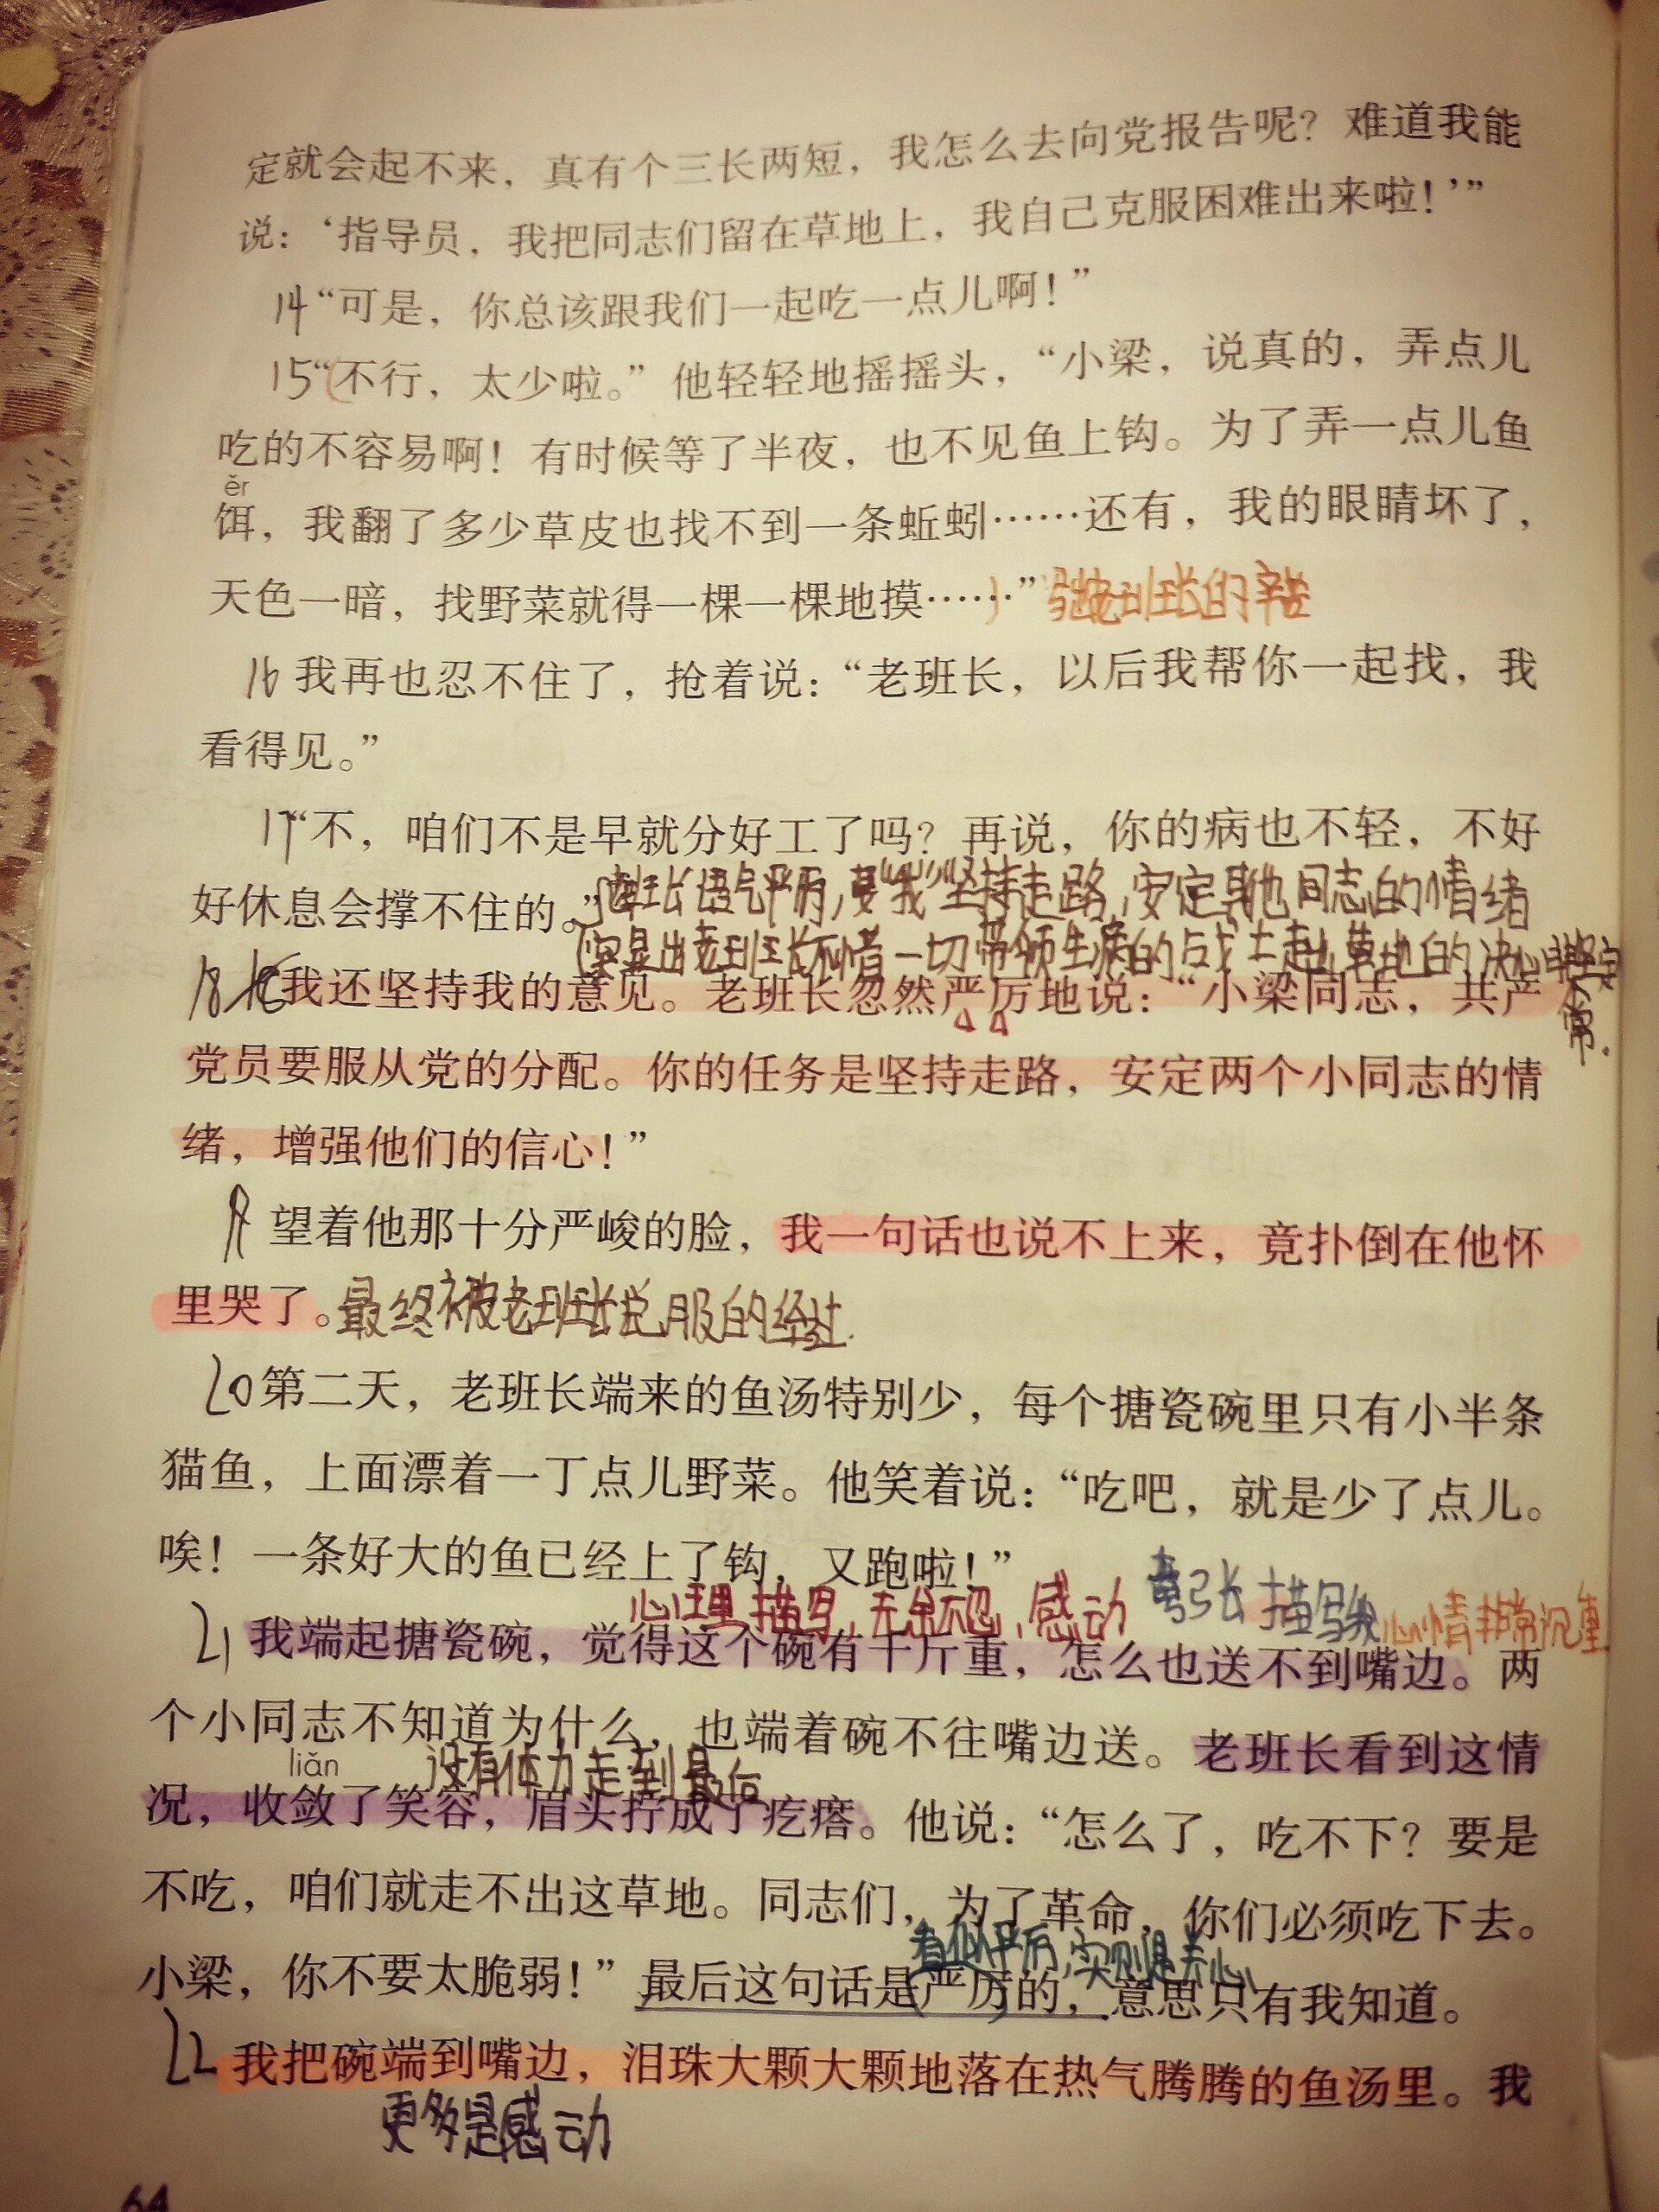 定就会起不来，真有个三长两短，我怎么去向党报告呢？难道我能
说：‘指导员，我把同志们留在草地上，我自己克服困难出来啦！’”
14“可是，你总该跟我们一起吃一点儿啊！”
15“不行，太少啦。”他轻轻地摇摇头，“小梁，说真的，弄点儿
吃的不容易啊！有时候等了半夜，也不见鱼上钩。为了弄一点儿鱼
ěr
饵，我翻了多少草皮也找不到一条蚯蚓……还有，我的眼睛坏了，
天色一暗，找野菜就得一棵一棵地摸……”老班长的辛苦
16 我再也忍不住了，抢着说：“老班长，以后我帮你一起找，我
看得见。”
17“不，咱们不是早就分好工了吗？再说，你的病也不轻，不好
好休息会撑不住的。”班长语气严厉，要“我”坚持走路，安定其他同志的情绪
突显出老班长不惜一切带领生病的战士走出草地的决心非常坚定
18 我还坚持我的意见。老班长忽然严厉地说：“小梁同志，共产
党员要服从党的分配。你的任务是坚持走路，安定两个小同志的情
绪，增强他们的信心！”
19 望着他那十分严峻的脸，我一句话也说不上来，竟扑倒在他怀
里哭了。最终被老班长说服的经过.
20 第二天，老班长端来的鱼汤特别少，每个搪瓷碗里只有小半条
猫鱼，上面漂着一丁点儿野菜。他笑着说：“吃吧，就是少了点儿。
唉！一条好大的鱼已经上了钩，又跑啦！”
心理描写，无余不忍，感动 夸张 描写我心情非常沉重
21 我端起搪瓷碗，觉得这个碗有千斤重，怎么也送不到嘴边。两
个小同志不知道为什么，也端着碗不往嘴边送。老班长看到这情
liǎn 没有体力走到最后
况，收敛了笑容，眉头拧成了疙瘩。他说：“怎么了，吃不下？要是
不吃，咱们就走不出这草地。同志们，为了革命，你们必须吃下去。
看似严厉，实则是关心
小梁，你不要太脆弱！”最后这句话是严厉的，意思只有我知道。
22 我把碗端到嘴边，泪珠大颗大颗地落在热气腾腾的鱼汤里。我
更多是感动
64